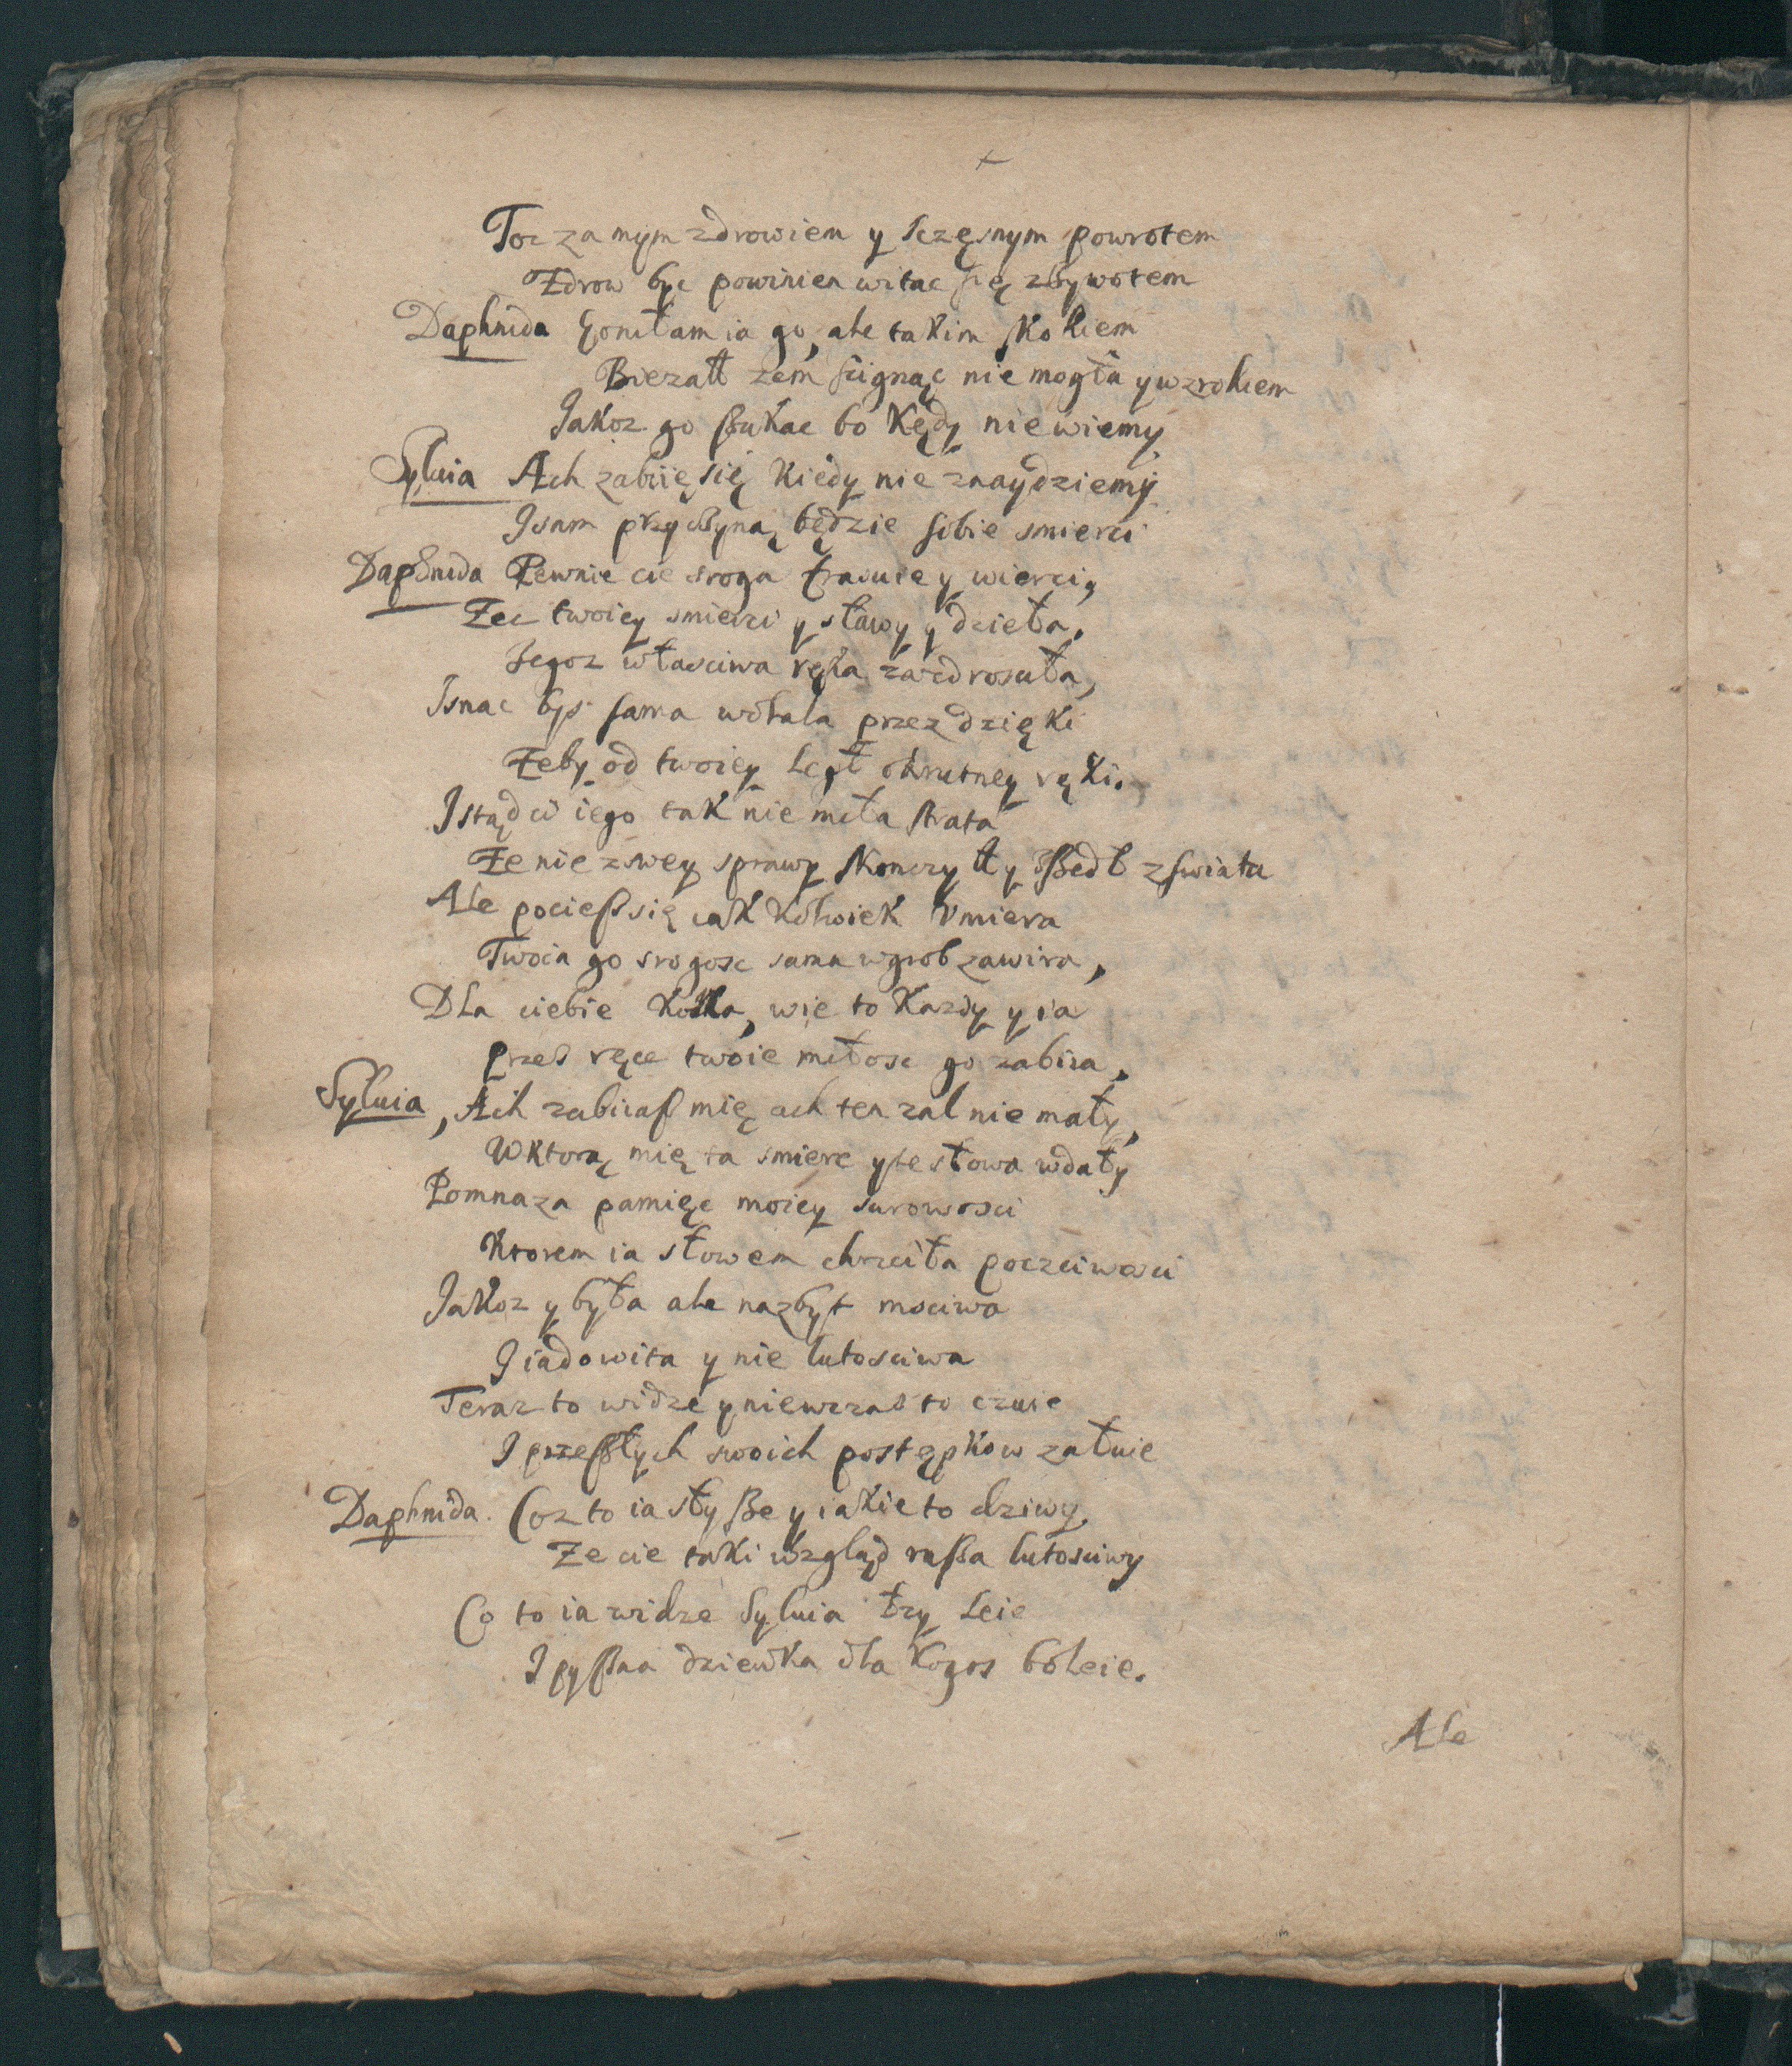 Toc za mym zdrowiem y sczęsnym powrotem
Zdrow byc powinien witac się zżywotem
Daphnida Goniłam ia go, ale takim skokiem
Biezałł zem scignąc nie mogła y wzrokiem
Jakoz go ßukac bo kędy nie wiemy
Sylvia Ach zabiię się kiedy nie znaydziemy
I sam przyczyną będzie sobie smierci
Daphnida Pewnie cie sroga frasuie y wierci,
Zec twoiey smierci y sławy y dzieła,
Jegoz własciwa ręka zazdrosciła,
Isnac bys sama wolala przez dzięki
Zeby od twoiey legł okrutney ręki.
I stąd ci iego tak nie miła strata
Ze nie z swey sprawy skonczyłł y zßedł z swiata
Ale pocieß się iak kolwiek vmiera
Twoia go srogosc sama w grob zawira,
Dla ciebie kona, wie to kazdy y ia
Przes ręce twoie miłosc go zabiia,
Sylvia, Ach zabiiaß mię ach ten zal nie mały,
W ktorą mię ta smierc y te słowa wdały
Pomnaza pamięc moiey surowosci
Ktorem ia słowem chrzciła poczciwosci
Jakoz y była ale nazbyt msciwa
I iadowita y nie lutosciwa
Teraz to widze y niewczas to czuie
I przeßłych swoich postępkow załuie
Daphnida. Coz to ia słyße y iakie to dziwy,
Ze cie taki wzgląd rußa lutosciwy
Co to ia widze Sylvia łzy leie
I pyßna dziewka dla kogos boleie.
Ale